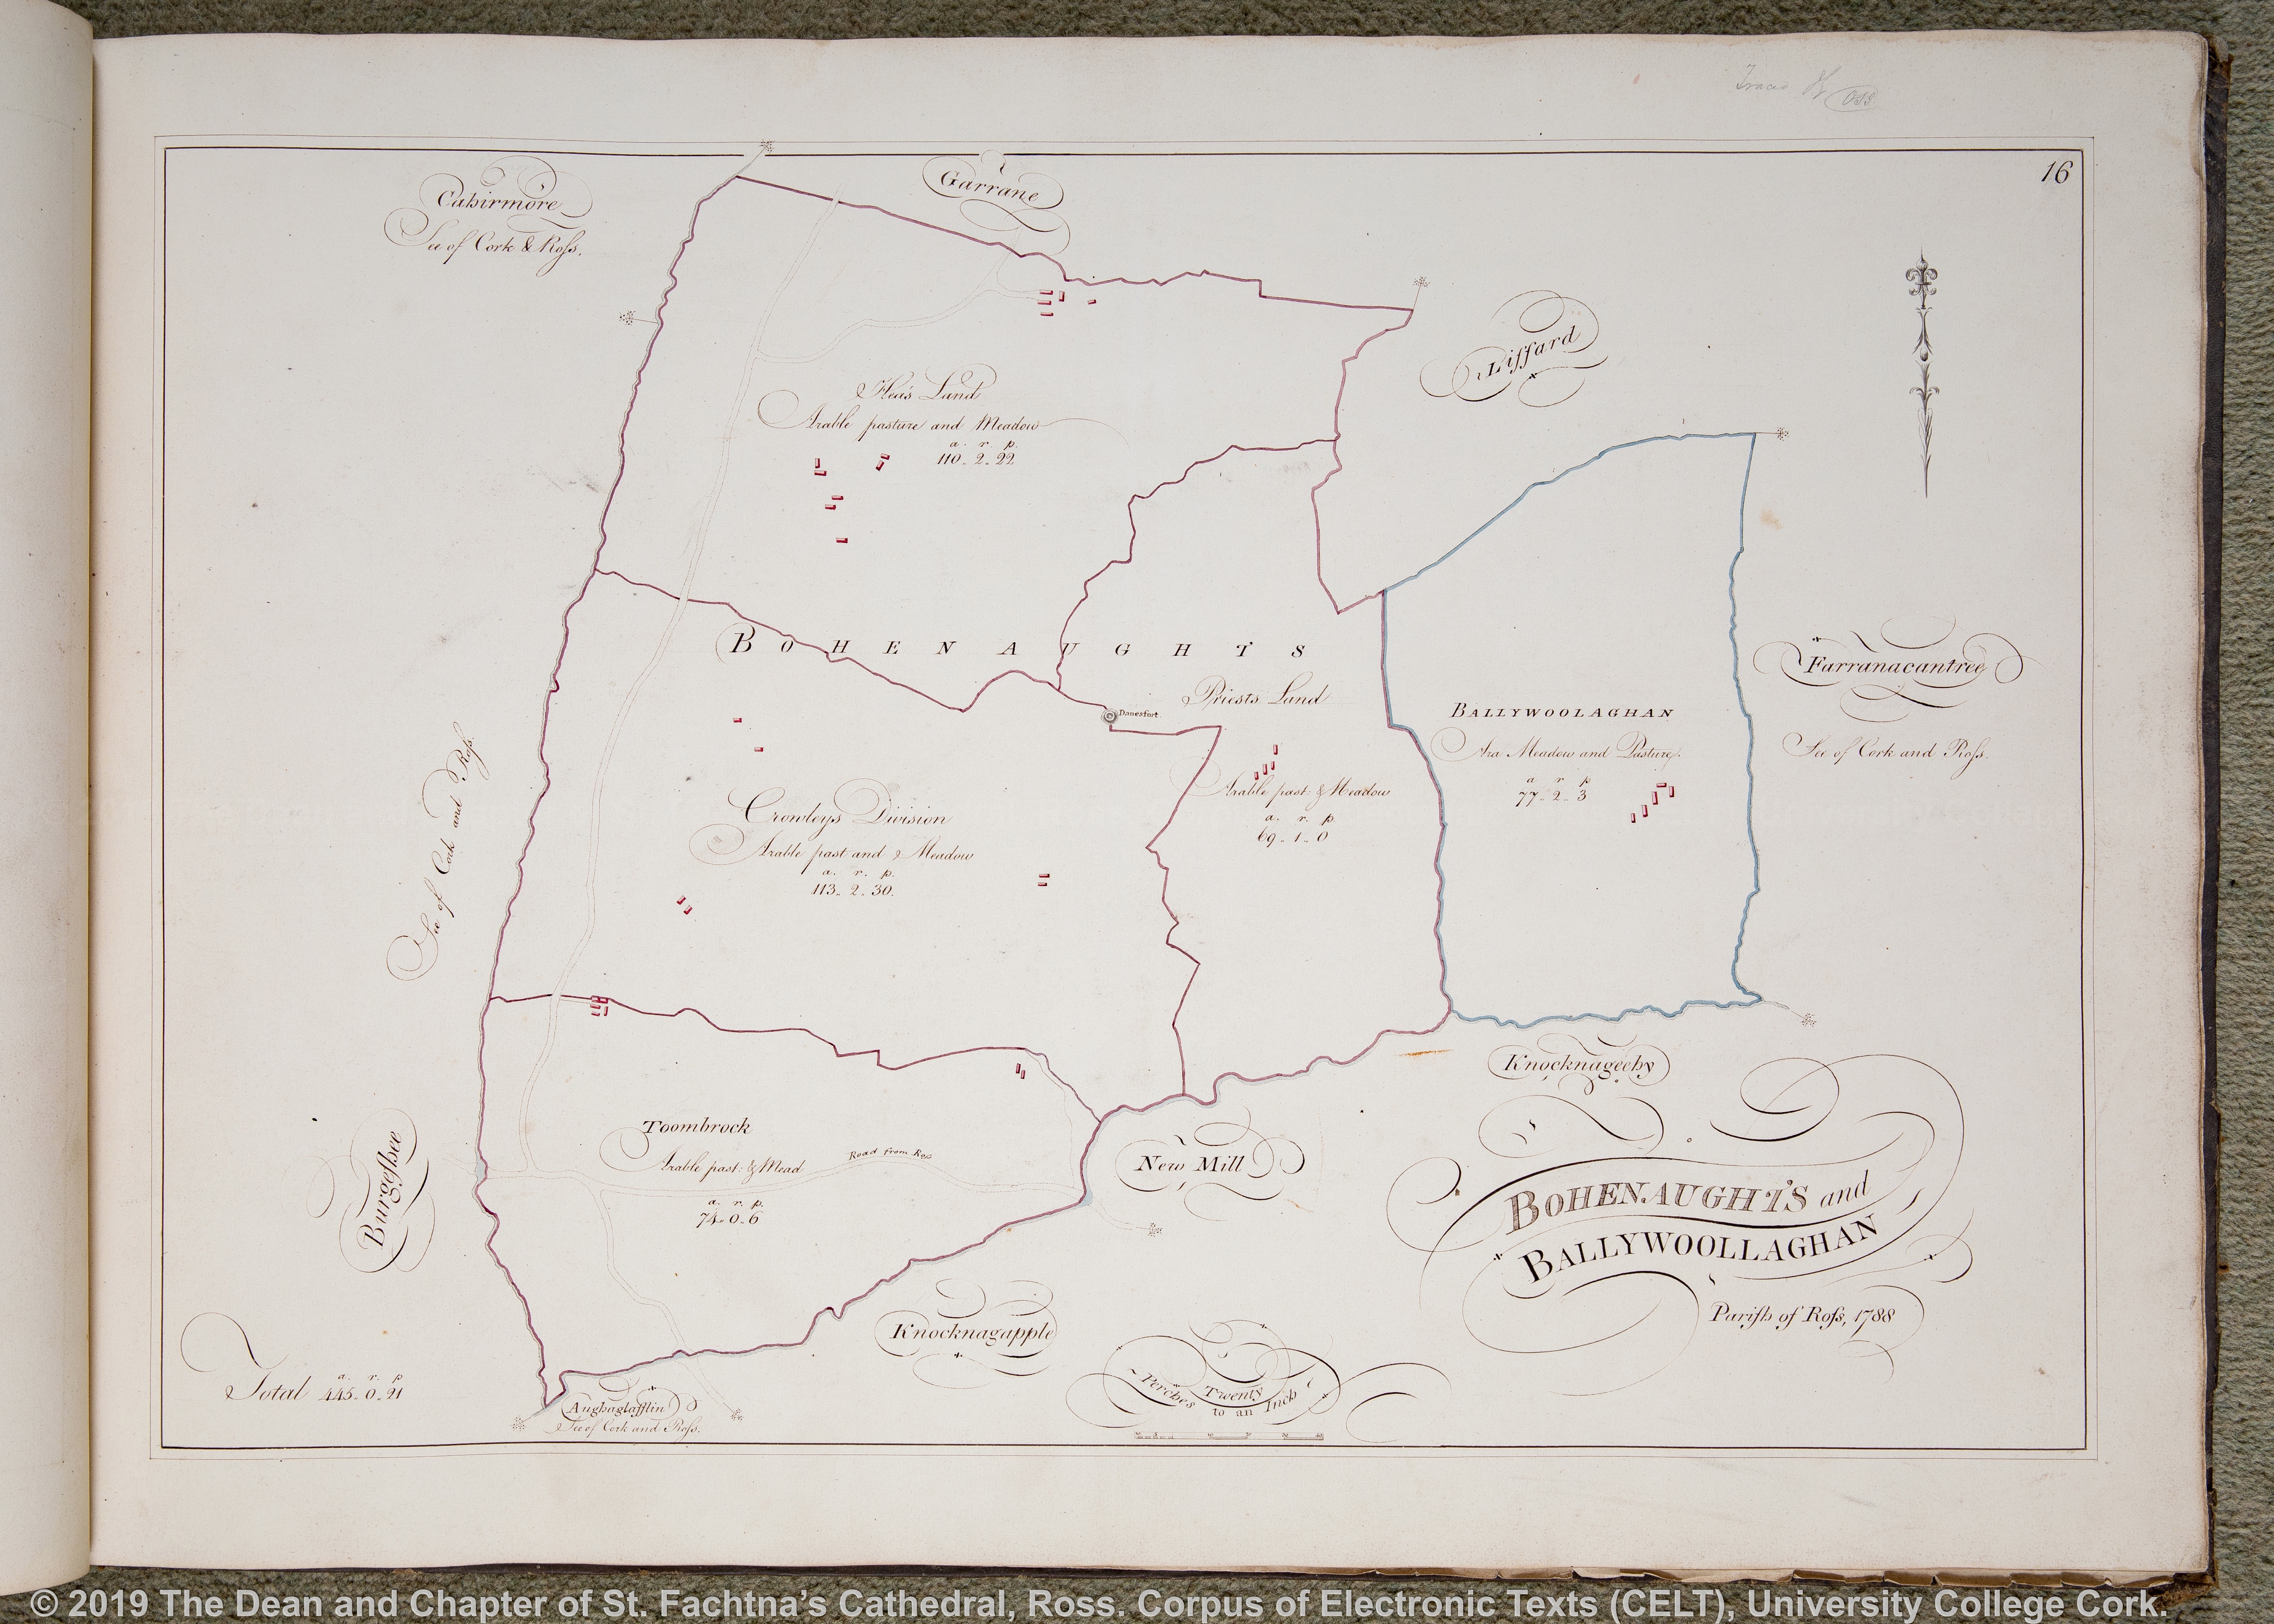 Traced
16
Cahirmore
See of Cork & Roſs.
Garrane
Liſſard
Hea's Land
Arable pasture and Meadow
a. r. p.
110. 2. 22
BOHENAUGHTS
Danesfort
Priests Land
Arable past: & Meadow
a. r. p.
69. 1. 0
BALLYWOOLAGHAN
Ara Meadow and Pasture.
a r p
77. 2. 3
Farranacantree
See of Cork and Roſs.
See of Cork and Roſs.
Crowleys Division
Arable past and & Meadow
a. r. p.
113. 2. 30.
Toombrock
Arable past: & Mead
a. r. p.
74. 0. 6
Road from Ross
Burgeſhee
New Mill
Knocknageehy
Knocknagapple
Aughaglaſſlin
See of Cork and Roſs.
Total
a. r. p
445. 0. 21
Perches Twenty
to an Inch
BOHENAUGHTS and
BALLYWOOLLAGHAN
Pariſh of Roſs, 1788
© 2019 The Dean and Chapter of St. Fachtna’s Cathedral, Ross. Corpus of Electronic Texts (CELT), University College Cork.